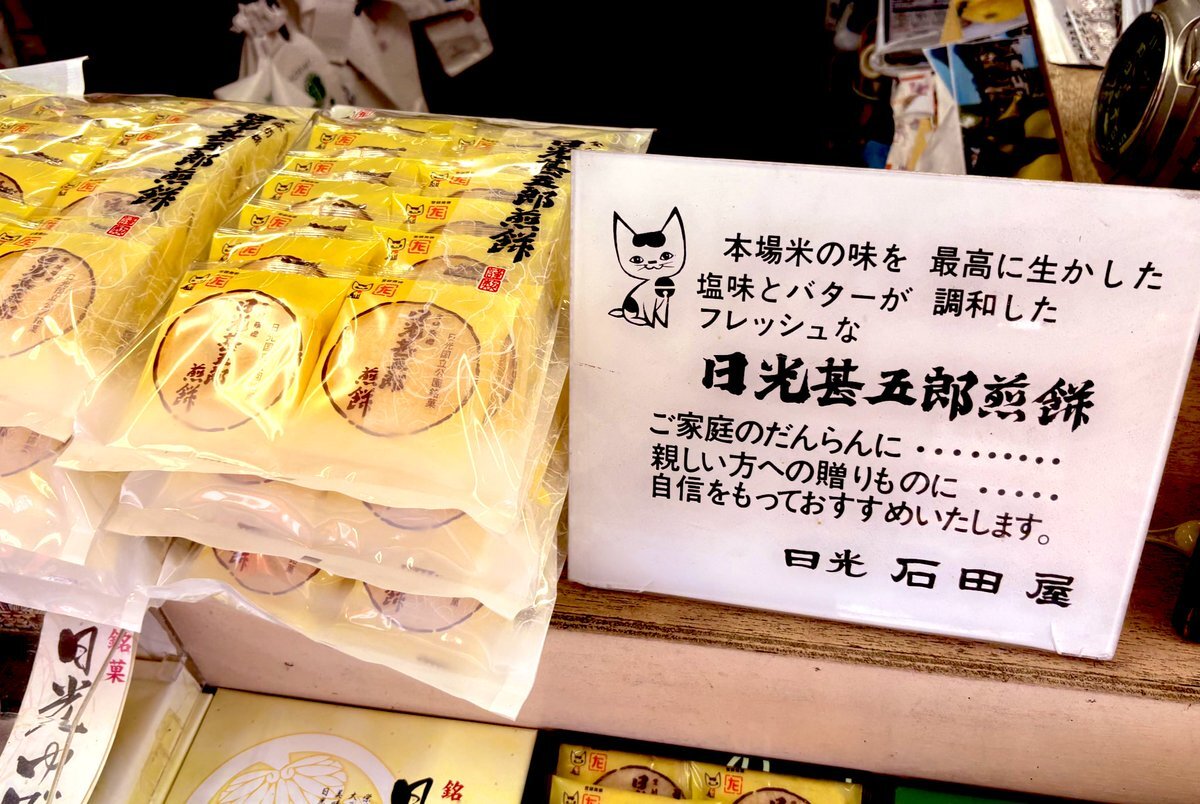 本場米の味を 最高に生かした
塩味とバターが 調和した
フレッシュな
日光甚五郎煎餅
ご家庭のだんらんに・・・・・・・・・
親しい方への贈りものに・・・・・
自信をもっておすすめいたします。
日光 石田屋
甚五郎煎餅
日光甚五郎煎餅
日光国立公園銘菓
甚五郎
煎餅
銘菓
日光
銘
日